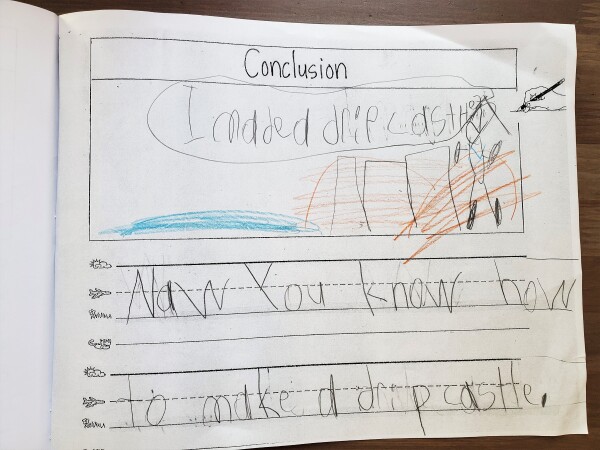 Conclusion
I maded drip castle
Naw You know how
to make a drip castle.